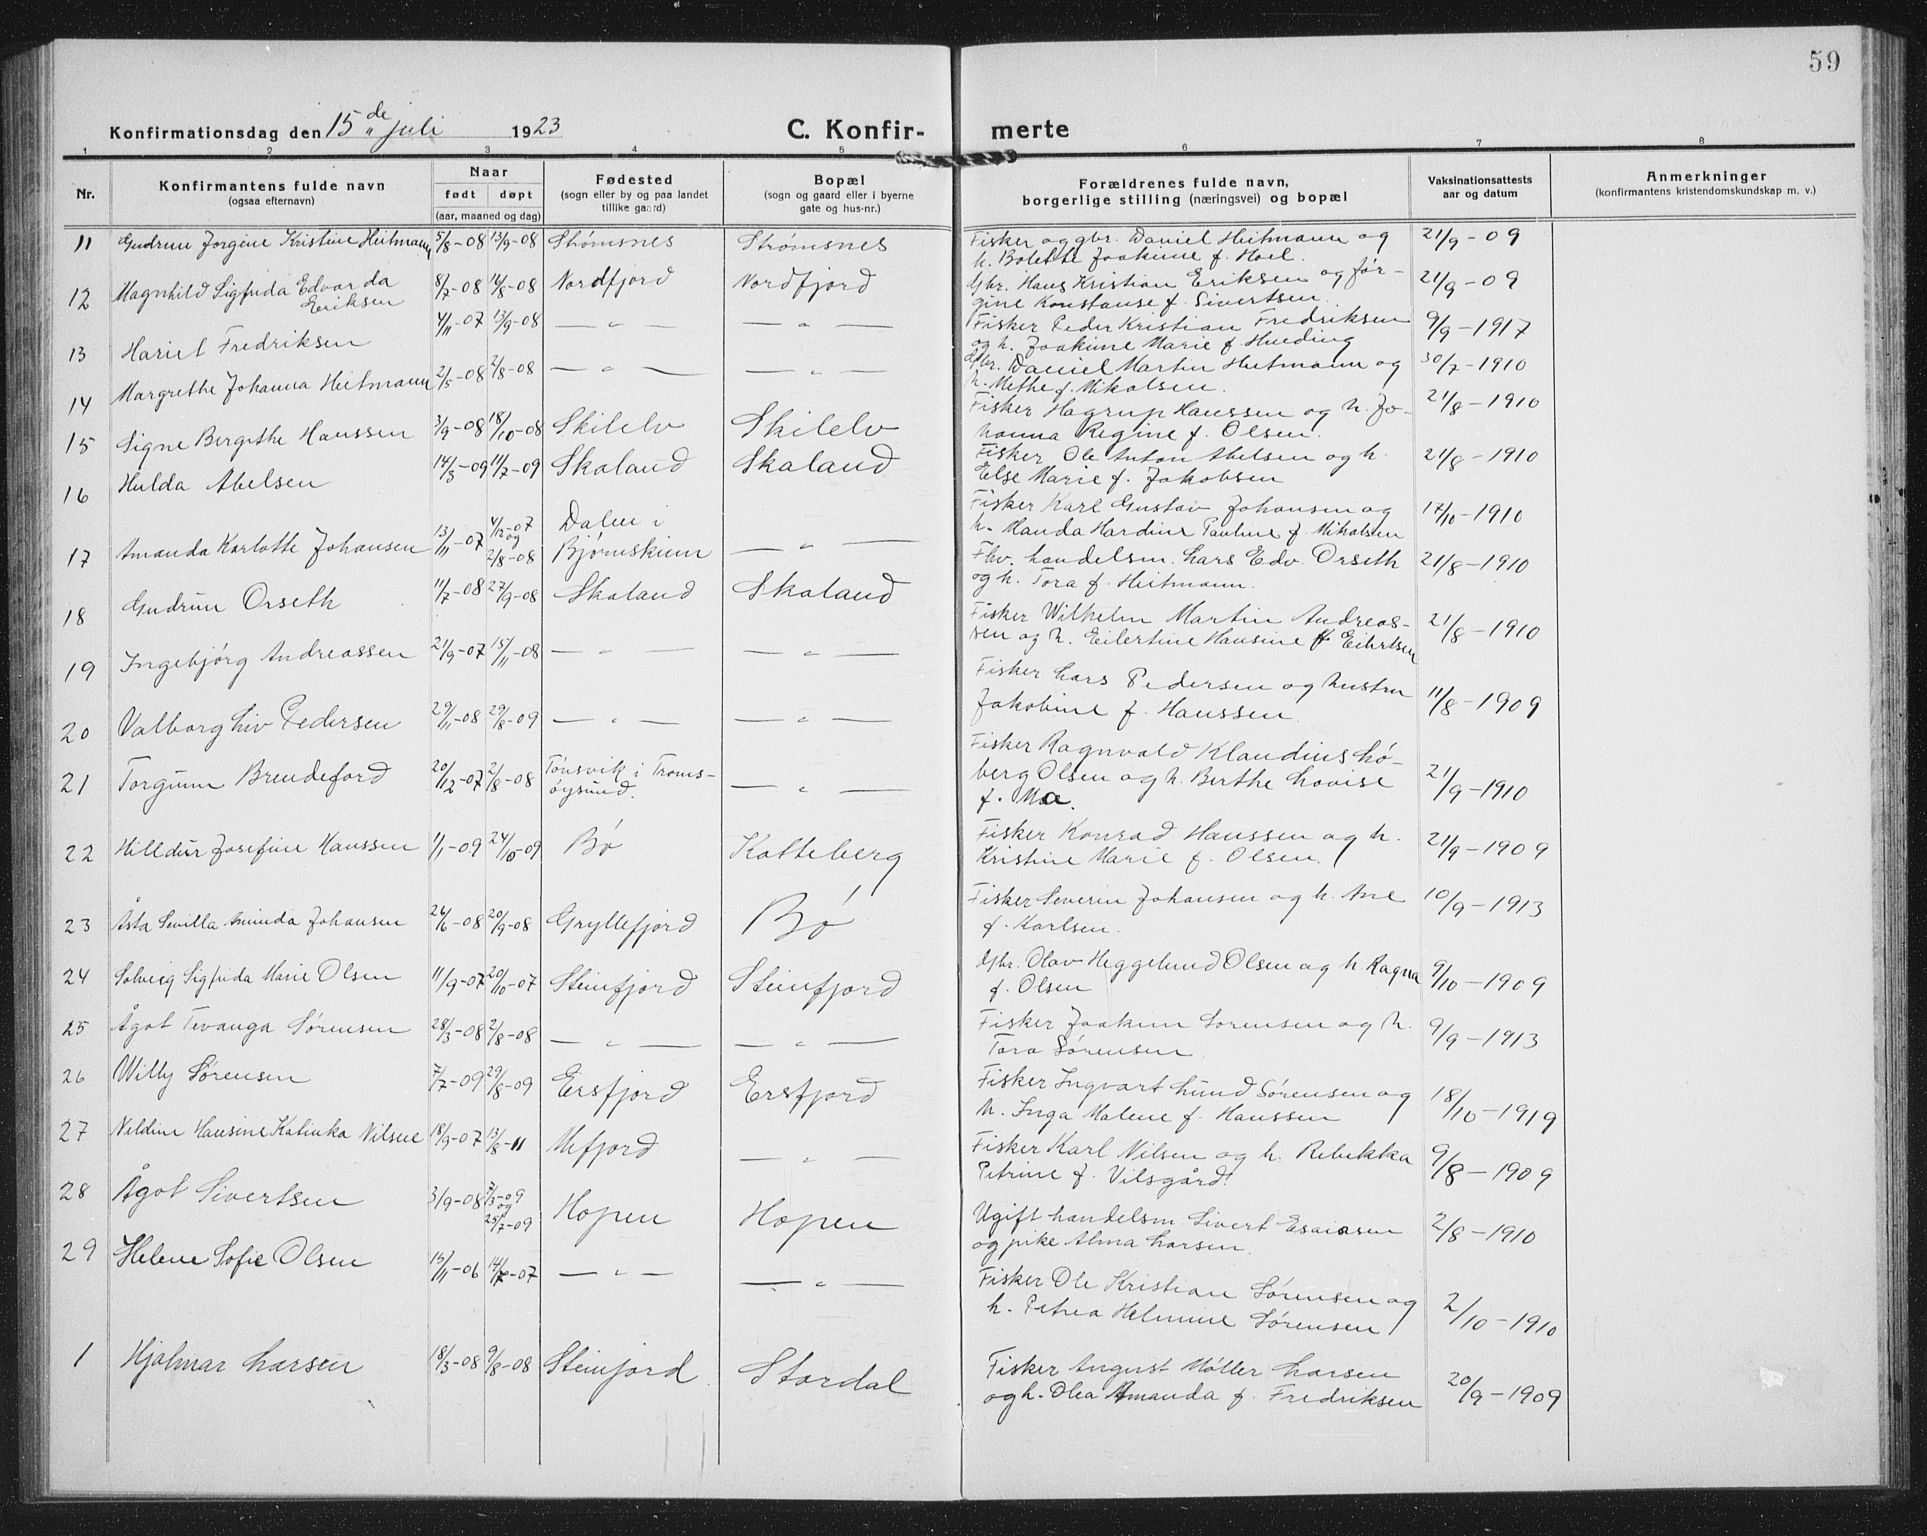 59
Konfirmationsdag den 15de juli 1923 C. Konfir- merte
1 2 3 4 5 6 7 8
Nr. Konfirmantens fulde navn (ogsaa efternavn) Naar født døpt (aar, maaned og dag) Fødested (sogn eller by og paa landet tillike gaard) Bopæl (sogn og gaard eller i byerne gate og hus-nr.) Forældrenes fulde navn, borgerlige stilling (næringsvei) og bopæl Vaksinationsattests aar og datum Anmerkninger (konfirmantens kristendomskundskap m. v.)
11 Gudrun Jorgine Kristine Heitmann 5/8-08 13/9-08 Strømsnes Strømsnes Fisker og gbr. Daniel Heitmann og 21/9-09
h. Bolette Joakime f. Hoel.
12 Magnhild Sigfrida Edvarda 8/7-08 14/8-08 Nordfjord Nordfjord Gbr. Hans Kristian Eriksen og Jør- 21/9-09
Eriksen gine Konstanse f. Sivertsen.
13 Hariet Fredriksen 4/11-07 13/9-08 — " — — " — Fisker Peder Kristian Fredriksen 9/9-1917
og h. Joakime Marie f. Hveding
14 Margrethe Johanna Heitmann 2/5-08 2/8-08 — " — — " — Gbr. Daniel Martin Heitmann og 30/7-1910
h. Methe f. Nikolsen.
15 Signe Bergithe Hanssen 3/9-08 18/10-08 Skilelv Skilelv Fisker Hagrup Hanssen og h. Jo- 21/8-1910
hanna Regine f. Olsen.
16 Hulda Abelsen 14/3-09 11/7-09 Skaland Skaland Fisker Ole Anton Abelsen og h. 21/8-1910
Else Marie f. Jakobsen
17 Amanda Karlotte Johansen 13/11-07 4/12-07 og 2/8-08 Dalen i Bjørnskinn — " — Fisker Karl Gustav Johansen og 17/10-1910
h. Manda Hardine Pauline f. Mikalsen
18 Gudrun Orseth 11/7-08 27/9-08 Skaland Skaland Fhv. handelsm. Lars Edv. Orseth 21/8-1910
og h. Tora f. Heitmann.
19 Ingebjørg Andreassen 21/9-07 15/11-08 — " — — " — Fisker Wilhelm Martin Andreas- 21/8-1910
sen og h. Eilertine Hansine f. Eilertsen
20 Valborg Liv Pedersen 29/11-08 29/8-09 — " — — " — Fisker Lars Pedersen og hustru 11/8-1909
Jakobine f. Hanssen.
21 Torgunn Brendeford 20/12-07 2/8-08 Tønsvik i Troms- øysund. — " — Fisker Ragnvald Klaudius Lø-
berg Olsen og h. Berthe Lovise 21/9-1910
f. Moe.
22 Hilldur Josefine Hanssen 1/1-09 24/10-09 Bø Kotteberg Fisker Konrad Hanssen og h. 21/9-1909
Kristine Marie f. Olsen.
23 Åsta Sevilla Aminda Johansen 24/6-08 20/9-08 Gryllefjord Bø Fisker Severin Johansen og h. Ane 10/9-1913
f. Karlsen.
24 Solveig Sigfrida Marie Olsen 11/9-07 20/10-07 Steinfjord Steinfjord Gbr. Olav Heggelund Olsen og h Ragna 9/10-1909
f. Olsen
25 Ågot Tevanga Sørensen 28/3-08 2/8-08 — " — — " — Fisker Joakim Sørensen og h. 9/9-1913
Tora Sørensen
26 Willy Sørensen 7/7-09 29/8-09 Ersfjord Ersfjord Fisker Ingvart Lund Sørensen og 18/10-1919
h. Inga Malene f. Hanssen
27 Nildine Hansine Katinka Nilsen 18/9-07 13/8-11 Mefjord — " — Fisker Karl Nilsen og h. Rebekka 9/8-1909
Petrine f. Vilsgård.
28 Ågot Sivertsen 3/9-08 7/3-09 og 25/7-09 Hopen Hopen Ugift handelsm. Sivert Esaiasen 2/8-1910
og pike Alma Larsen.
29 Helene Sofie Olsen 15/11-06 14/7-07 — " — — " — Fisker Ole Kristian Sørensen og 2/10-1910
h. Petrea Helmine Sørensen
1 Hjalmar Larsen 18/3-08 9/8-08 Steinfjord Stordal Fisker August Møller Larsen 20/9-1909
og h. Olea Amanda f. Fredriksen